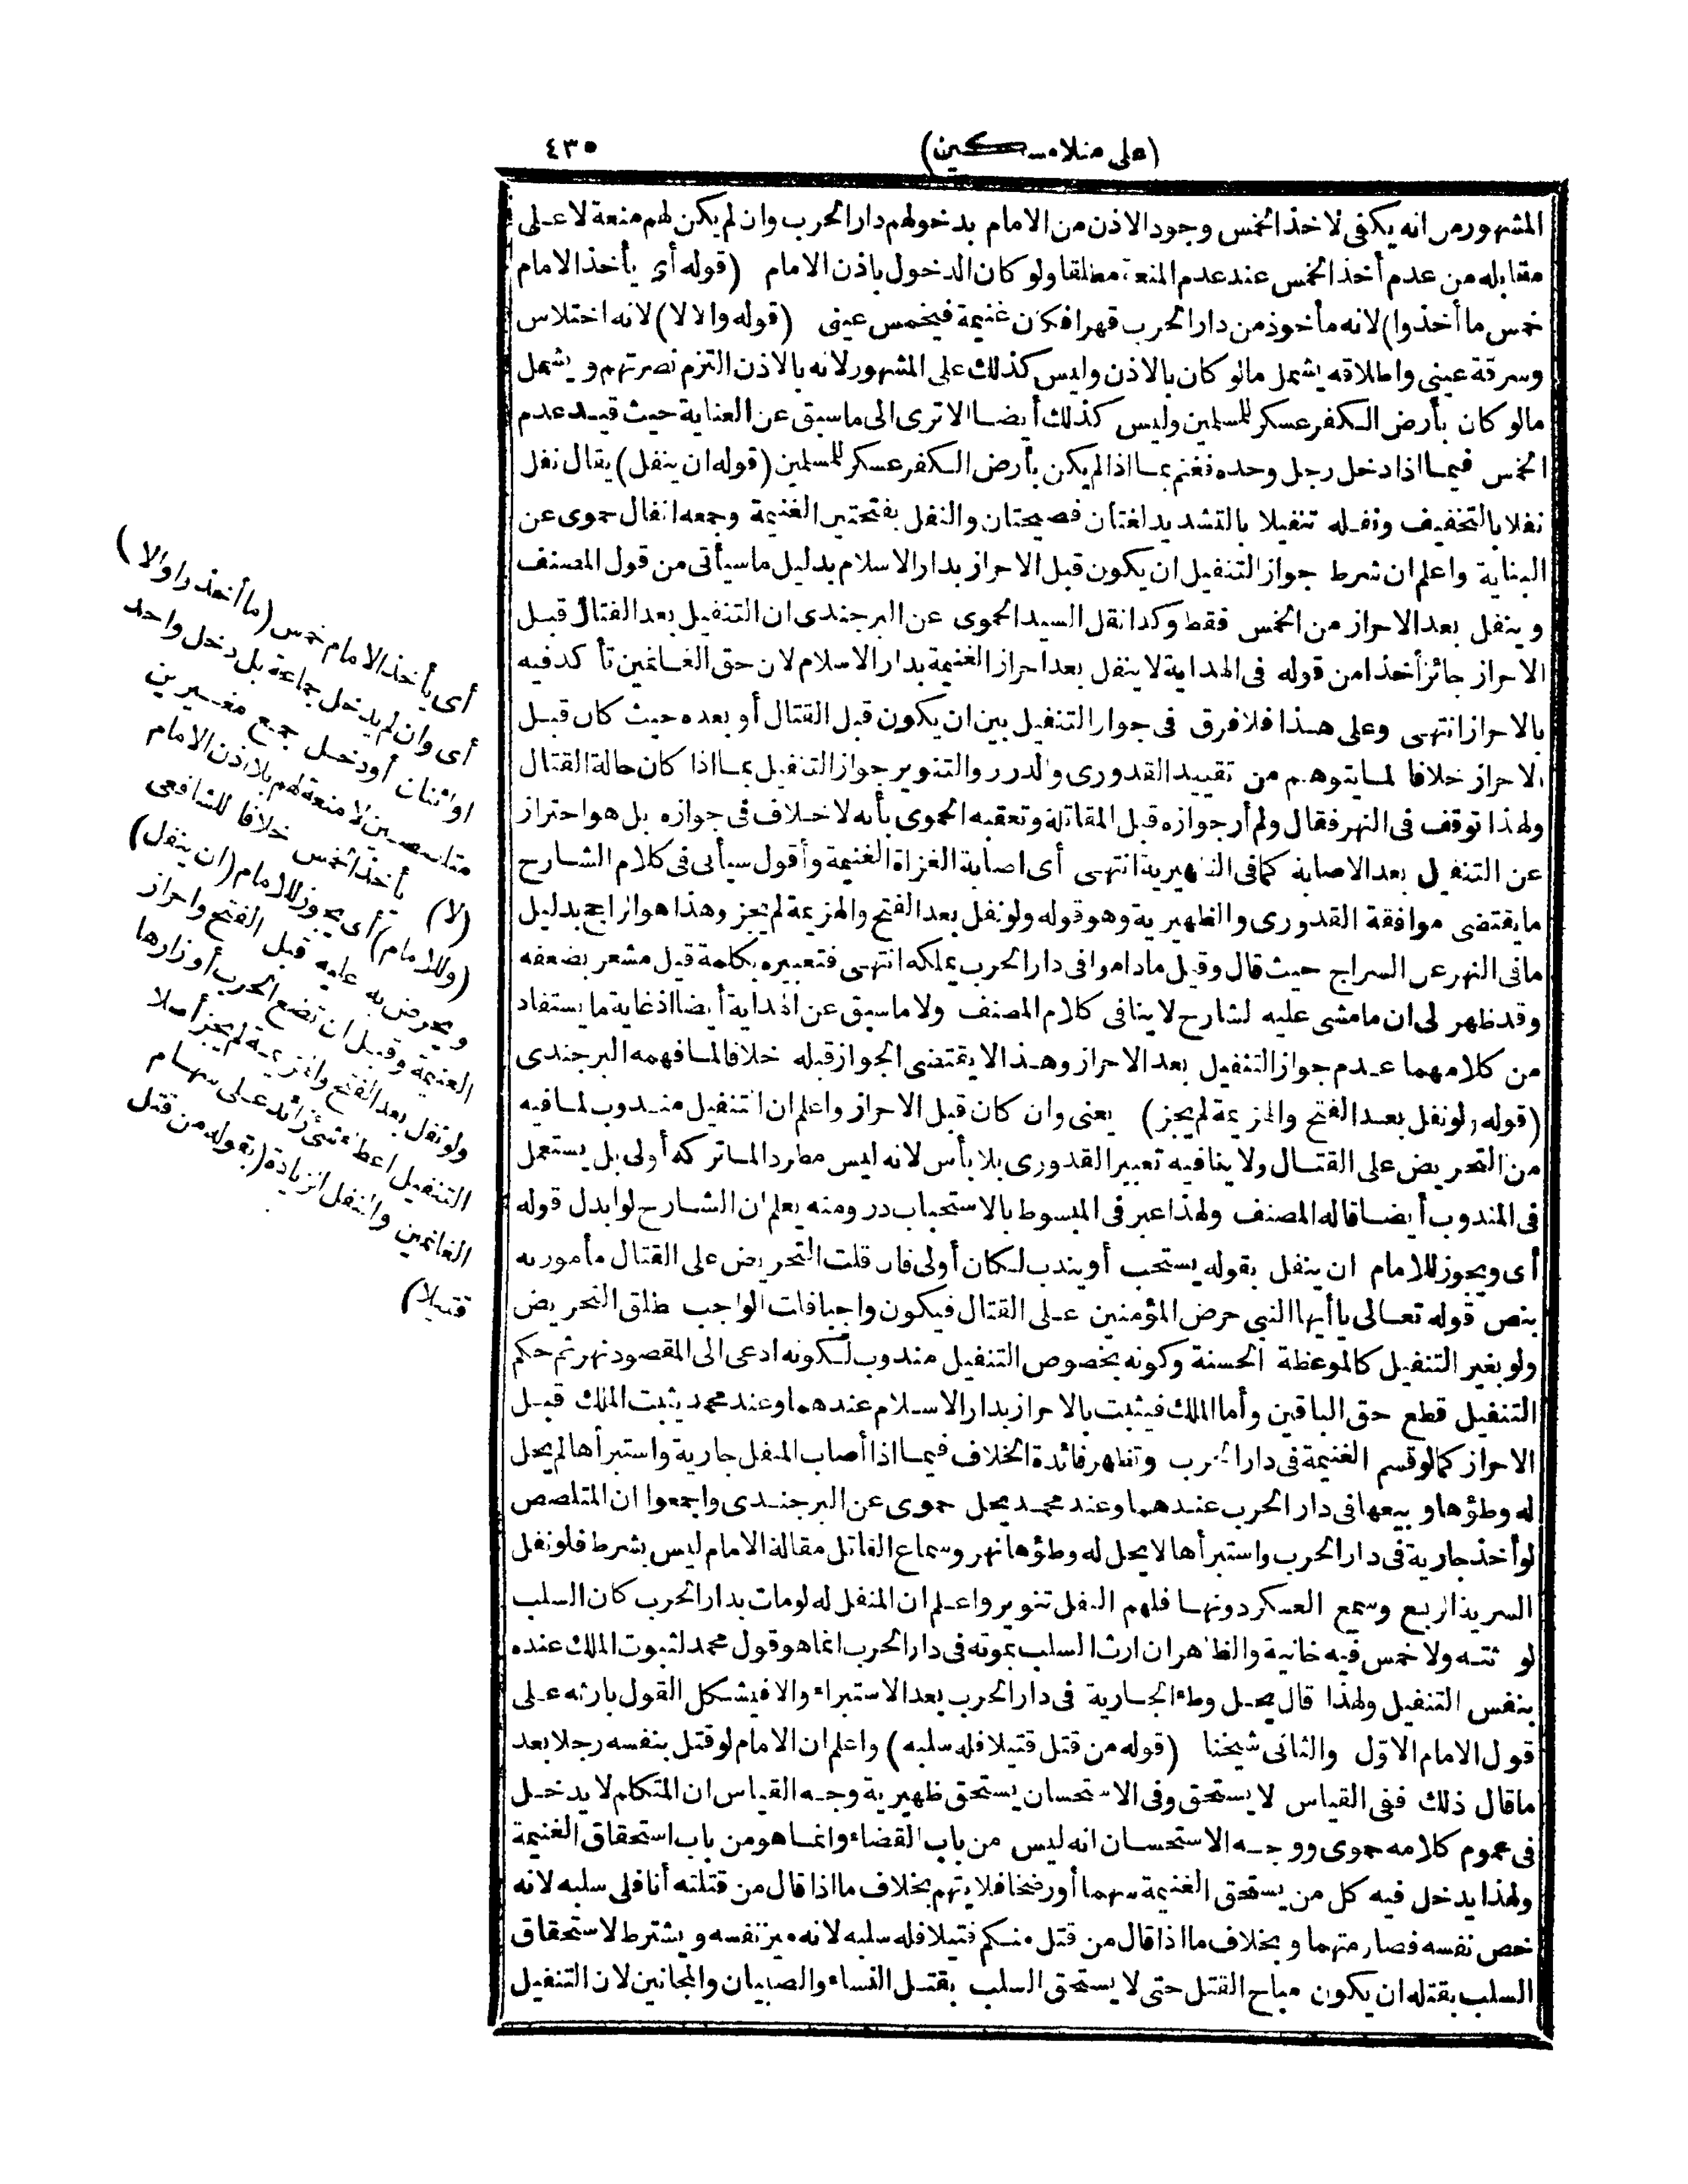 (على منلا مسكين)
٤٣٥
المشهور من انه يكفى لاخذ الخمس وجود الاذن من الامام بدخولهم دار الحرب وان لم يكن لهم منعة لا على
مقابله من عدم أخذ الخمس عند عدم المنعة مطلقا ولو كان الدخول باذن الامام (قوله أى يأخذ الامام
خمس ما أخذوا) لانه مأخوذ من دار الحرب قهرا فكان غنيمة فيخمس عينى (قوله والا لا) لانه اختلاس
وسرقة عينى واطلاقه يشمل ما لو كان بالاذن وليس كذلك على المشهور لانه بالاذن التزم نصرتهم ويشمل
ما لو كان بأرض الكفر عسكر للمسلمين وليس كذلك أيضا الا ترى الى ما سبق عن العناية حيث قيد عدم
الخمس فيما اذا دخل رجل وحده فغنم بما اذا لم يكن بأرض الكفر عسكر للمسلمين (قوله ان ينفل) يقال نفل
نفلا بالتخفيف ونفله تنفيلا بالتشديد لغتان فصيحتان والنفل بفتحتين الغنيمة وجمعه انفال حموى عن
البناية واعلم ان شرط جواز التنفيل ان يكون قبل الاحراز بدار الاسلام بدليل ما سيأتى من قول المصنف
وينفل بعد الاحراز من الخمس فقط وكذا نقل السيد الحموى عن البرجندى ان التنفيل بعد القتال قبل
الاحراز جائز أخذا من قوله فى الهداية لا ينفل بعد احراز الغنيمة بدار الاسلام لان حق الغانمين تأكد فيه
بالاحراز انتهى وعلى هذا فلا فرق فى جواز التنفيل بين ان يكون قبل القتال أو بعده حيث كان قبل
الاحراز خلافا لما يتوهم من تقييد القدورى والدرر والتنوير جواز التنفيل بما اذا كان حالة القتال
ولهذا توقف فى النهر فقال ولم أر جوازه قبل المقاتلة وتعقبه الحموى بأنه لا خلاف فى جوازه بل هو احتراز
عن التنفيل بعد الاصابة كما فى الظهيرية انتهى أى اصابة الغزاة الغنيمة وأقول سيأتى فى كلام الشارح
ما يقتضى موافقة القدورى والظهيرية وهو قوله ولو نفل بعد الفتح والهزيمة لم يجز وهذا هو الراجح بدليل
ما فى النهر عن السراج حيث قال وقيل ما داموا فى دار الحرب يملكه انتهى فتعبيره بكلمة قيل مشعر بضعفه
وقد ظهر لى ان ما مشى عليه الشارح لا ينافى كلام المصنف ولا ما سبق عن الهداية أيضا اذ غاية ما يستفاد
من كلامهما عدم جواز التنفيل بعد الاحراز وهذا لا يقتضى الجواز قبله خلافا لما فهمه البرجندى
(قوله ولو نفل بعد الفتح والهزيمة لم يجز) يعنى وان كان قبل الاحراز واعلم ان التنفيل مندوب لما فيه
من التحريض على القتال ولا ينافيه تعبير القدورى بلا بأس لانه ليس مطردا لما تركه أولى بل يستعمل
فى المندوب أيضا قاله المصنف ولهذا عبر فى المبسوط بالاستحباب در ومنه يعلم ان الشارح لو ابدل قوله
أى ويجوز للامام ان ينفل بقوله يستحب أو يندب لكان أولى فان قلت التحريض على القتال مأمور به
بنص قوله تعالى يا أيها النبى حرض المؤمنين على القتال فيكون واجبا قلت الواجب مطلق التحريض
ولو بغير التنفيل كالموعظة الحسنة وكونه بخصوص التنفيل مندوب لكونه ادعى الى المقصود نهر ثم حكم
التنفيل قطع حق الباقين وأما الملك فيثبت بالاحراز بدار الاسلام عندهما وعند محمد يثبت الملك قبل
الاحراز كما لو قسم الغنيمة فى دار الحرب وتظهر فائدة الخلاف فيما اذا أصاب المنفل جارية واستبرأها لم يحل
له وطؤها وبيعها فى دار الحرب عندهما وعند محمد يحل حموى عن البرجندى واجمعوا ان المتلصص
لو أخذ جارية فى دار الحرب واستبرأها لا يحل له وطؤها نهر وسماع القاتل مقالة الامام ليس بشرط فلو نفل
السرية الربع وسمع العسكر دونها فلهم النفل تنوير واعلم ان المنفل له لو مات بدار الحرب كان السلب
لورثته ولا خمس فيه خانية والظاهر ان ارث السلب بموته فى دار الحرب انما هو قول محمد لثبوت الملك عنده
بنفس التنفيل ولهذا قال يحل وطء الجارية فى دار الحرب بعد الاستبراء والا فيشكل القول بارثه على
قول الامام الاوّل والثانى شيخنا (قوله من قتل قتيلا فله سلبه) واعلم ان الامام لو قتل بنفسه رجلا بعد
ما قال ذلك ففى القياس لا يستحق وفى الاستحسان يستحق ظهيرية وجه القياس ان المتكلم لا يدخل
فى عموم كلامه حموى ووجه الاستحسان انه ليس من باب القضاء وانما هو من باب استحقاق الغنيمة
ولهذا يدخل فيه كل من يستحق الغنيمة سهما أو رضخا فلا يتهم بخلاف ما اذا قال من قتلته أنا فلى سلبه لانه
خص نفسه فصار متهما وبخلاف ما اذا قال من قتل منكم قتيلا فله سلبه لانه ميز نفسه ويشترط لاستحقاق
السلب بقتله ان يكون مباح القتل حتى لا يستحق السلب بقتل النساء والصبيان والمجانين لان التنفيل
أى يأخذ الامام خمس (ما أخذوا والا)
أى وان لم يدخل جماعة بل دخل واحد
او اثنان أو دخل جمع مغيرين
متلصصين لا منعة لهم بلا اذن الامام
(لا) يأخذ الخمس خلافا للشافعى
(وللامام) أى يجوز للامام (ان ينفل)
ويحرض به عليه قبل الفتح واحراز
الغنيمة وقبل ان تضع الحرب أوزارها
ولو نفل بعد الفتح والهزيمة لم يجز أصلا
التنفيل اعطاء شئ زائد على سهام
الغانمين والنفل الزيادة (بقوله من قتل
قتيلا)